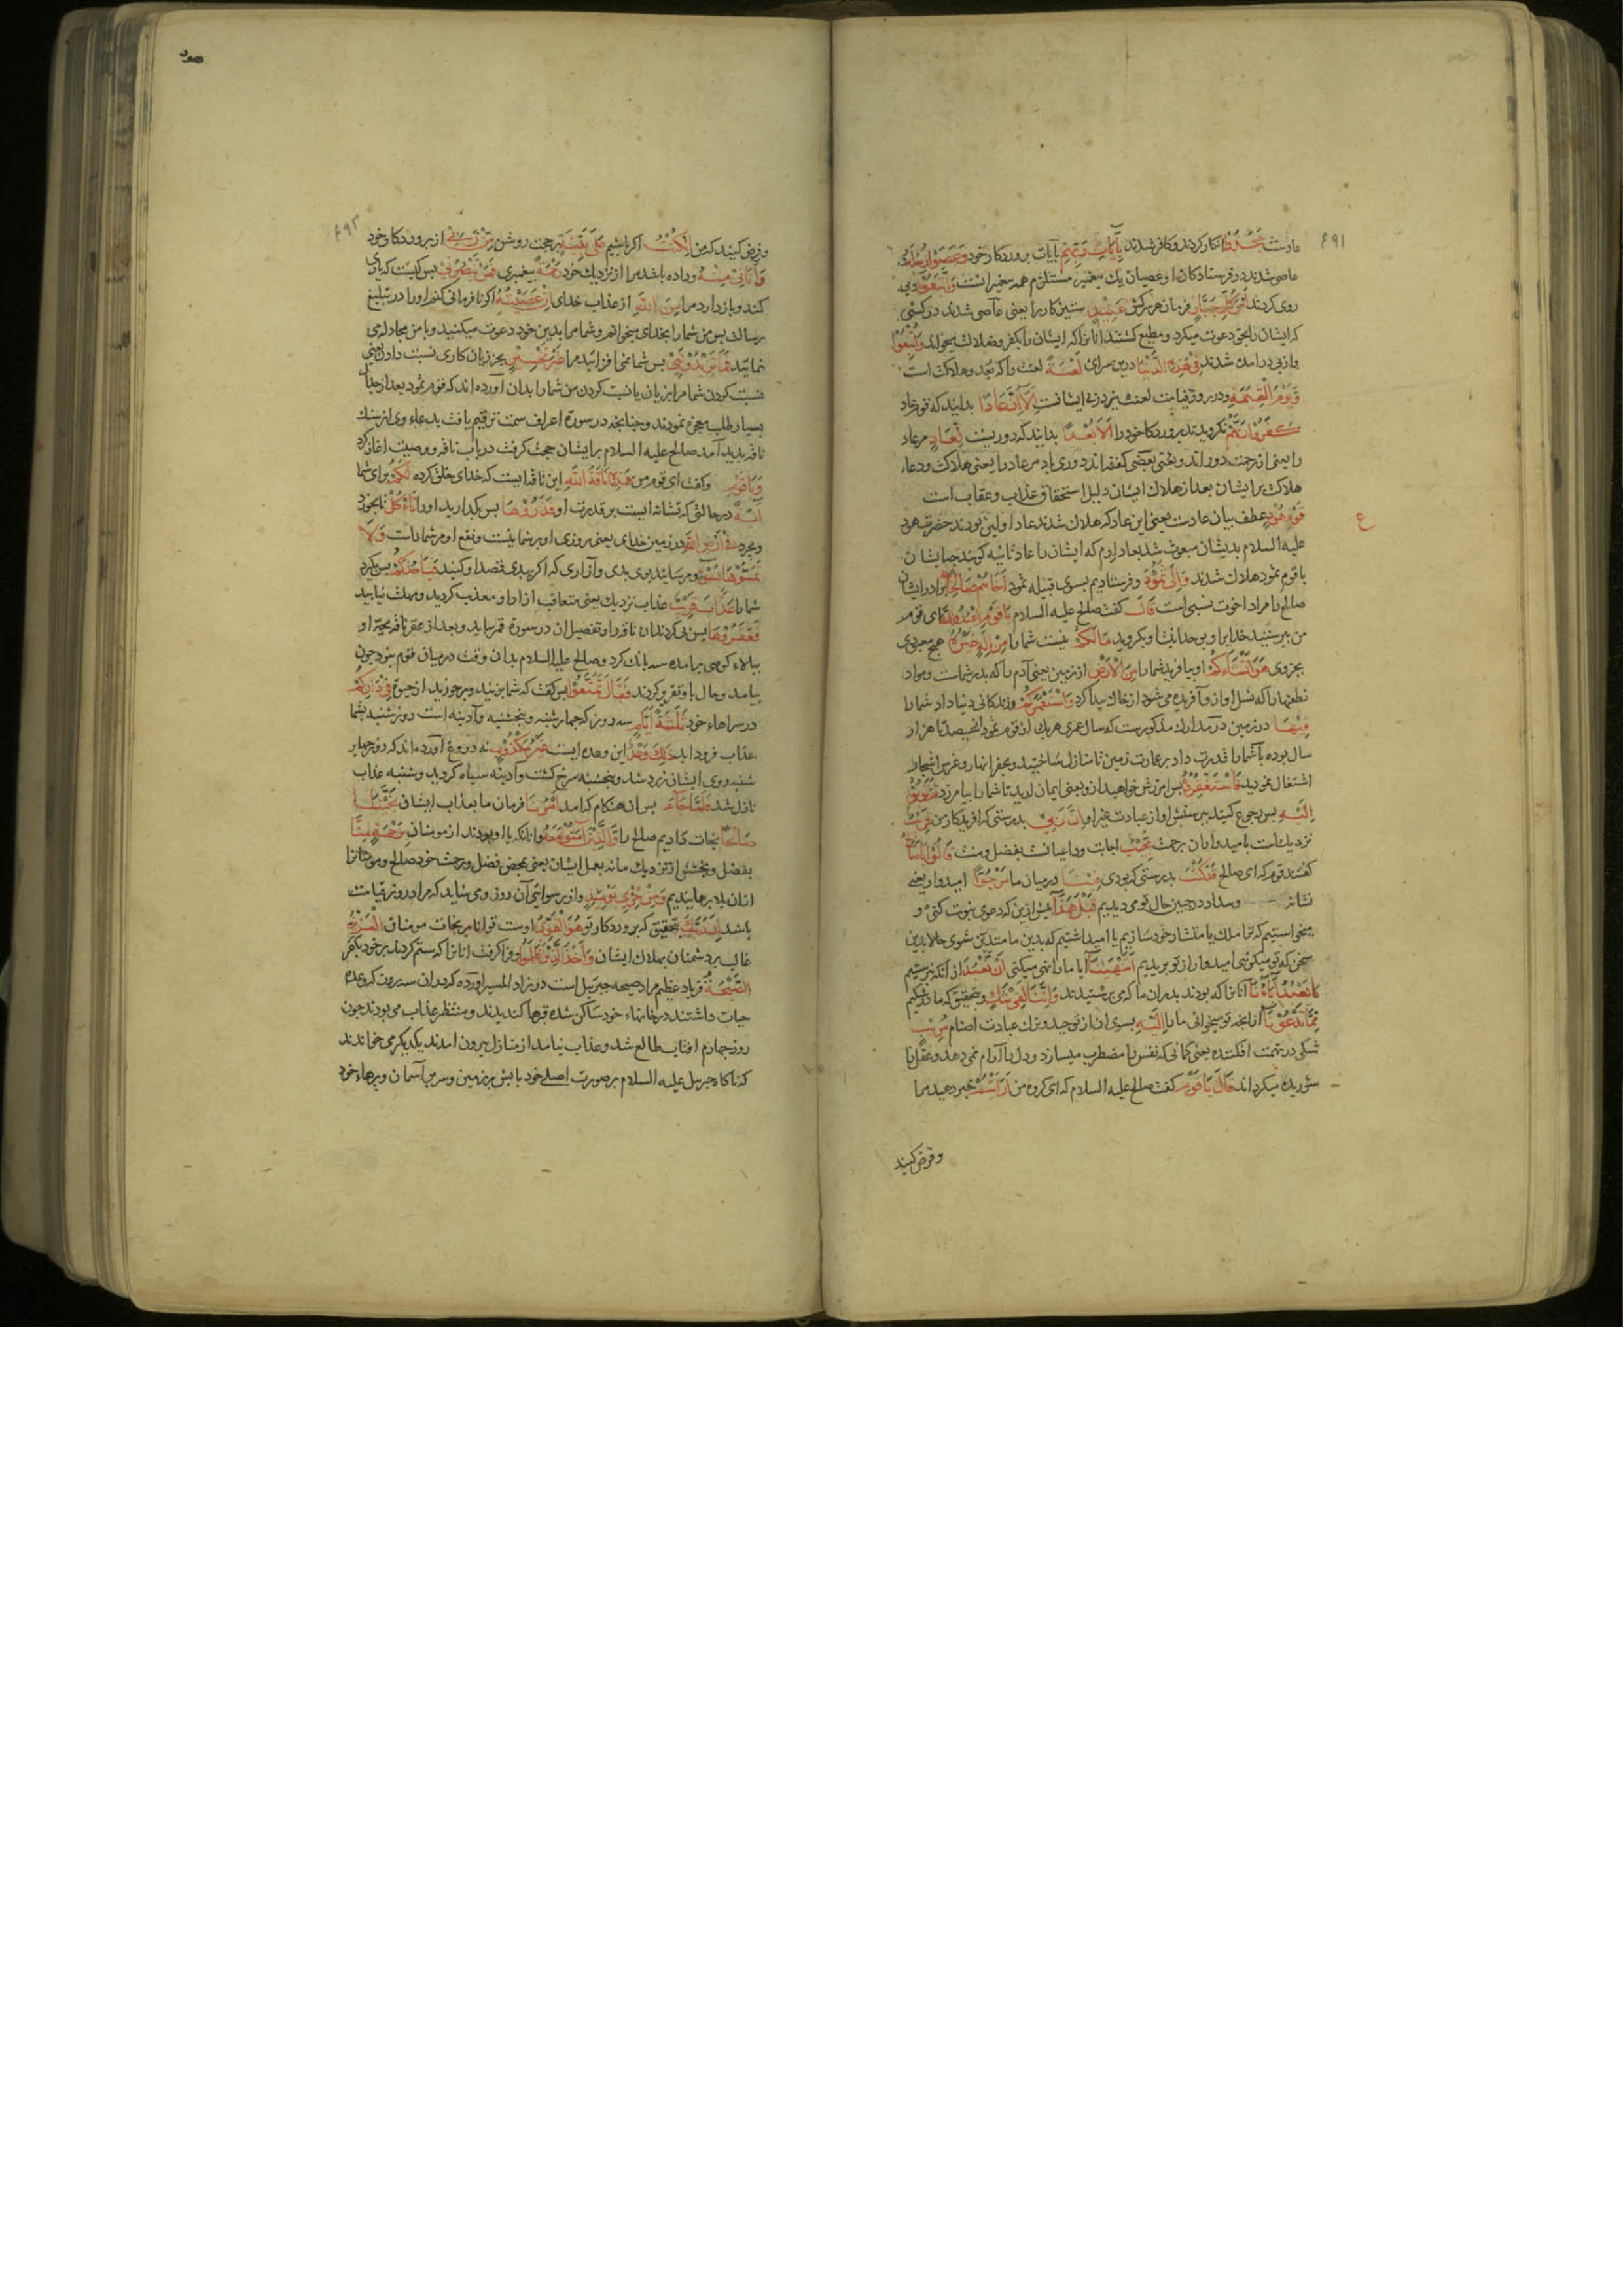 ۶۹۱
عادست جَحَدُوا انکار کردند و کافر شدند بِآيَاتِ رَبِّهِمْ بآیات پروردکار خود وَعَصَوْا رُسُلَهُ
عاصی شدند در فرستادکان او عصیان یك پیغمبر مستلزم همه پیغمبرانست وَاتَّبَعُوا و پی
روی کردند اَمْرَ كُلِّ جَبَّارٍ فرمان هر سرکش عَنِيدٍ ستیزکار را یعنی عاصی شدند در کسی
که ایشان را بحق دعوت میکرد و مطیع کشتند انانرا که ایشان را بکفر و ضلالت میخواند وَاُتْبِعُوا
و از پی در امده شدند فِي هٰذِهِ الدُّنْيَا درین سرای لَعْنَةً لعنت را که بُعد و هلاکت است
وَيَوْمَ الْقِيٰمَةِ و در روز قیامت لعنت نیز در پی ایشانست اَلَا اِنَّ عَادًا بدانید که قوم عاد
كَفَرُوا رَبَّهُمْ نکرویدند پروردکار خود را اَلَا بُعْدًا بدانید که دوریست لِعَادٍ مر عاد
را یعنی از رحمت دور اند و بعضی کفته اند دوری باد مر عاد را یعنی هلاکت و دعاء
هلاکت بر ایشان بعد از هلاك ایشان دلیل استحقاق عذاب و عقاب است
قَوْمِ هُودٍ عطف بیان عادست یعنی این عاد که هلاك شدند عاد اولین بودند حضرت هود
علیه السلام بدیشان مبعوث شد بعاد ارم که ایشان را عاد ثانیه کویند
با قوم ثمود هلاك شدند وَاِلٰى ثَمُودَ و فرستادیم بسوی قبیله ثمود اَخَاهُمْ صَالِحًا برادر ایشان
صالح را مراد اخوت نسبی است قَالَ کفت صالح علیه السلام يَا قَوْمِ اعْبُدُوا اللّٰهَ ای قوم
من بپرستید خدایرا و بوحدانیت او بکروید مَا لَكُمْ نیست شما را مِنْ اِلٰهٍ غَيْرُهُ هیچ معبودی
بجز وی هُوَ اَنْشَاَكُمْ او بیافرید شما را مِنَ الْاَرْضِ از زمین یعنی آدم را که پدر شماست و مواد
نطفها را که نسل او ازو آفریده می شود از خاك پیدا کرد وَاسْتَعْمَرَكُمْ و زندکانی دنیا داد شما را
فِيهَا در زمین در مدارك مذکورست که سال عمری هر یك از قوم ثمود از سیصد تا هزار
سال بوده یا شما را قدرت داد بر عمارت زمین تا منازل ساختید و بحفر انهار و غرس اشجار
اشتغال نمودید فَاسْتَغْفِرُوهُ پس امرزش خواهید ازو یعنی ایمان ارید تا شما را بیامرزد ثُمَّ تُوبُوا
اِلَيْهِ پس رجوع کنید بپرستش او از عبادت غیر او اِنَّ رَبِّي بدرستی که افریدکار من قَرِيبٌ
نزدیك است بامیدواران برحمت مُجِيبٌ اجابت داعیانست بفضل و منت قَالُوا يَا صَالِحُ
کفتند قوم که ای صالح قَدْ كُنْتَ بدرستی که بودی فِينَا درمیان ما مَرْجُوًّا امیدوار یعنی
نشانه وسداد در جبین حال تو می دیدیم قَبْلَ هٰذَا پیش ازین که دعوی نبوت کنی و
میخواستیم که ترا ملك یا مستشار خود سازیم یا امید داشتیم که بدین ما متدین شوی حالا بدین
سخن که تو میکوئی امیدوار از تو بریدیم اَتَنْهٰينَا آیا ما را نهی میکنی اَنْ نَعْبُدَ از آنکه پرستیم
مَا يَعْبُدُ اٰبَاؤُنَا آنانرا که بودند پدران ما که می پرستیدند وَاِنَّنَا لَفِي شَكٍّ و بتحقیق که ما در شکیم
مِمَّا تَدْعُونَا از انچه تو میخوانی ما را اِلَيْهِ بسوی آن از توحید و ترك عبادت اصنام مُرِيبٍ
شکی در تهمت افکننده یعنی کمانی که نفس را مضطرب میسازد و دل را آرام نمی دهد و عقل را
شوریده میکرداند قَالَ يَا قَوْمِ کفت صالح علیه السلام که ای کروه من اَرَاَيْتُمْ خبر دهید مرا
و فرض کنید
ع
هود
۶۹۲
و فرض کنید که من اِنْ كُنْتُ اکر باشم عَلٰى بَيِّنَةٍ بر حجت روشن مِنْ رَبِّي از پروردکار خود
وَاٰتَانِي مِنْهُ و داده باشد مرا از نزدیك خود رَحْمَةً پیغمبری فَمَنْ يَنْصُرُنِي پس کیست که یاری
کند و باز دارد مرا مِنَ اللّٰهِ از عذاب خدای اِنْ عَصَيْتُهُ اکر نافرمانی کنم او را در تبلیغ
رسالت پس من شما را بخدای میخوانم و شما مرا بدین خود دعوت میکنید و با من مجادله می
نمایید فَمَا تَزِيدُونَنِي پس شما نمی افزائید مرا غَيْرَ تَخْسِيرٍ بجز زیان کاری نسبت دادن یعنی
نسبت کردن شما مرا بزیان یا نسبت کردن من شما را بدان آورده اند که قوم ثمود بعد از
بسیار طلب معجزه نمودند و چنانچه در سورة اعراف سمت ترقیم یافت بدعاء وی از سنك
ناقه پدید آمد صالح علیه السلام بر ایشان حجت کرفت در باب ناقه و وصیت اغاز کرد
وَيَا قَوْمِ و کفت ای قوم من هٰذِهِ نَاقَةُ اللّٰهِ این ناقه ایست که خدای خلق کرده لَكُمْ برای شما
اٰيَةً درحالتی که نشانه ایست بر قدرت او فَذَرُوهَا پس بکذارید او را تَاْكُلْ تا بخورد
و بچرد فِي اَرْضِ اللّٰهِ در زمین خدای یعنی روزی او بر شما نیست و نفع او مر شما راست وَلَا
تَمَسُّوهَا بِسُوءٍ و مرسانید بوی بدی و آزاری که اکر بدی قصد او کنید فَيَاْخُذَكُمْ پس بکیرد
شما را عَذَابٌ قَرِيبٌ عذاب نزدیك یعنی متعاقب ازار او معذب کردید و مهلت نیابید
فَعَقَرُوهَا پس پی کردند ان ناقه را و تفصیل ان در سورة قمر بیاید و بعد از عقر ناقه بچه او
ببالاء کوهی برامده سه بانك کرد و صالح علیه السلام بدان وقت درمیان قوم نبود چون
بیامد و حال باو تقریر کردند فَقَالَ تَمَتَّعُوا پس کفت که شما بزئید و برخورید از حیوة فِي دَارِكُمْ
در سراهاء خود ثَلٰثَةَ اَيَّامٍ سه روز که چهارشنبه و پنجشنبه و آدینه است روز شنبه بشما
عذاب فرود اید ذٰلِكَ وَعْدٌ این وعده ایست غَيْرُ مَكْذُوبٍ نه دروغ آورده اند که روز چهار
شنبه روی ایشان زرد شد و پنجشنبه سرخ کشت و آدینه سیاه کردید و شنبه عذاب
نازل شد فَلَمَّا جَاءَ پس ان هنکام که امد اَمْرُنَا فرمان ما بعذاب ایشان نَجَّيْنَا
صَالِحًا نجات دادیم صالح را وَالَّذِينَ اٰمَنُوا مَعَهُ و انانکه با او بودند از مومنان بِرَحْمَةٍ مِنَّا
بفضل و بخششی از نزدیك ما نه بعمل ایشان یعنی بمحض فضل و رحمت خود صالح و مومنانرا
ازان بلا برهانیدیم وَمِنْ خِزْيِ يَوْمِئِذٍ و از رسوائی آن روز و می شاید که مراد روز قیامت
باشد اِنَّ رَبَّكَ بتحقیق که پروردکار تو هُوَ الْقَوِيُّ اوست توانا بر نجات مومنان الْعَزِيزُ
غالب بر دشمنان بهلاك ایشان وَاَخَذَ الَّذِينَ ظَلَمُوا و فرا کرفت انانرا که ستم کردند بر خود بکفر
الصَّيْحَةُ فریاد عظیم مراد صیحه جبرئیل است در زاد المسیر آورده که دران سه روز که وعده
حیات داشتند در خانهاء خود ساکن شده قبرها کندیدند و منتظر عذاب می بودند چون
روز چهارم افتاب طالع شد و عذاب نیامد از منازل بیرون امدند یکدیکر می خواندند
که ناکاه جبرئیل علیه السلام بر صورت اصلی خود پایش بر زمین و سر بر آسمان و پرهاء خود